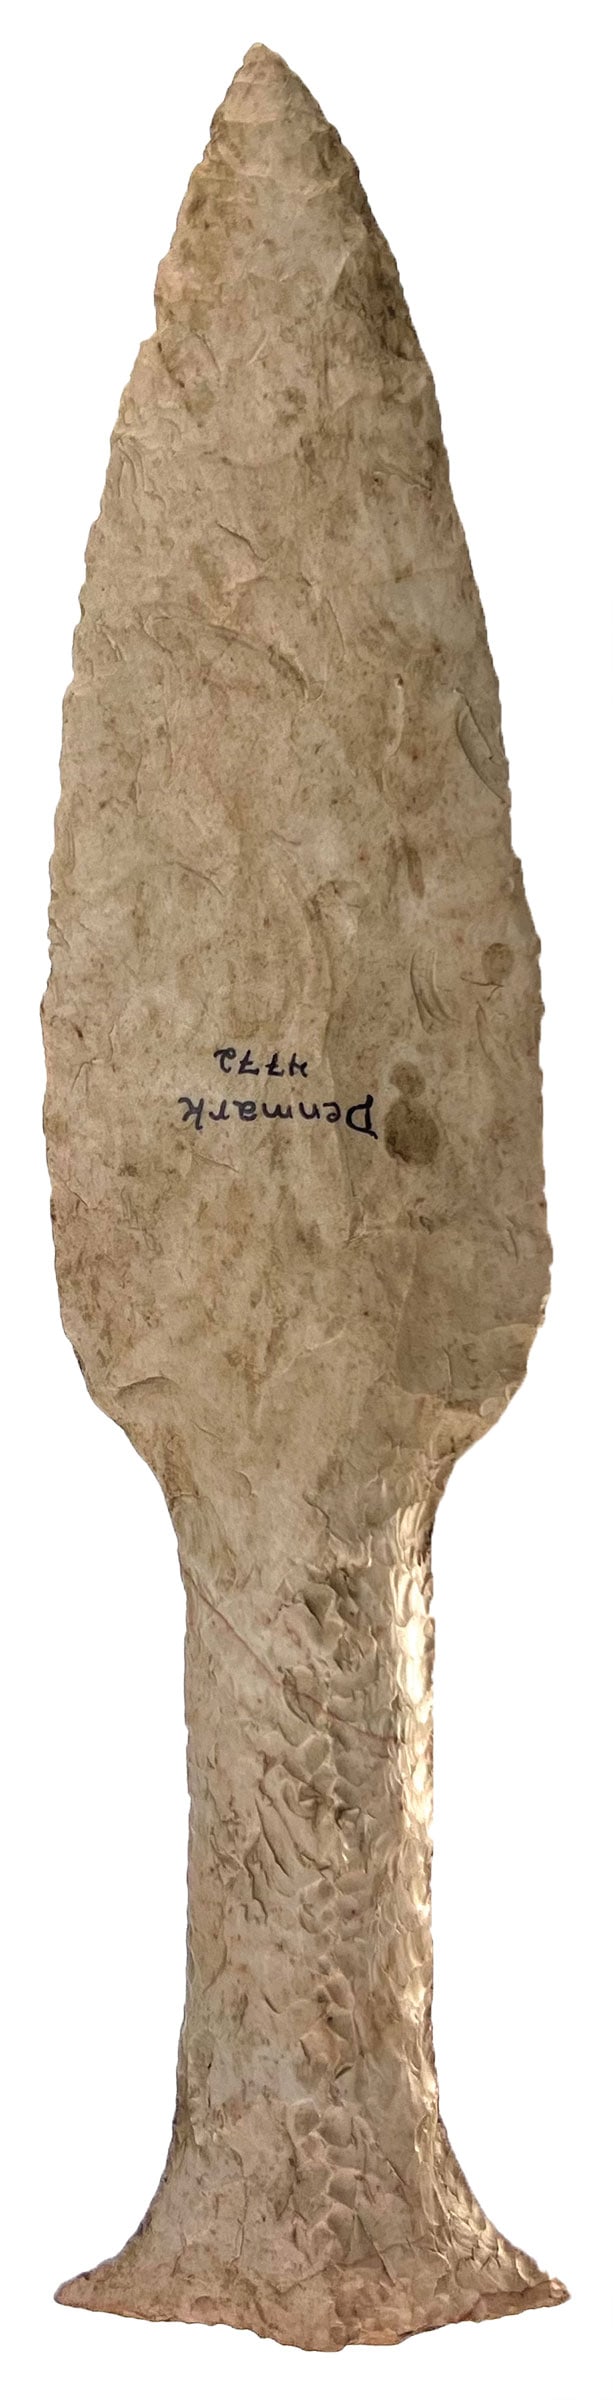 Denmark
4772